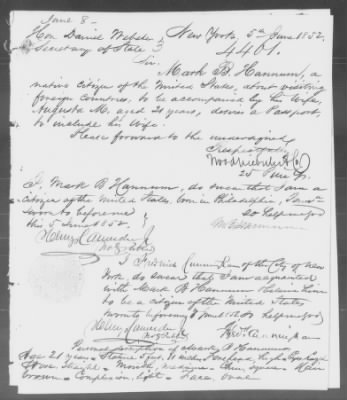 June 8
Hon Daniel Webster New York, 5th June 1852.
Secretary of State 4401.
Sir,
Mark B. Hannum, a
native citizen of the United States, about visiting
foreign countries, to be accompanied by his Wife,
Augusta M. aged 21 years, desires a Passport,
to include his Wife.
Please forward to the undersigned
Respectfully
25
I, Mark B Hannum, do swear that I am a
citizen of the United States, born in Philadelphia,
So help me God
Sworn to before me
this 5 June 1852.
Henry
I Frederick of the City of New
York do swear that I am acquainted
with Mark B Hannum
to be a citizen of the United States
Sworn to before me 5 June 1852 So help me God
Henry
Personal description of Mark B Hannum
Age 21 years Stature 5 feet Forehead high Eyes
Nose straight Mouth, medium Chin, square Hair
brown Complexion, light Face, oval